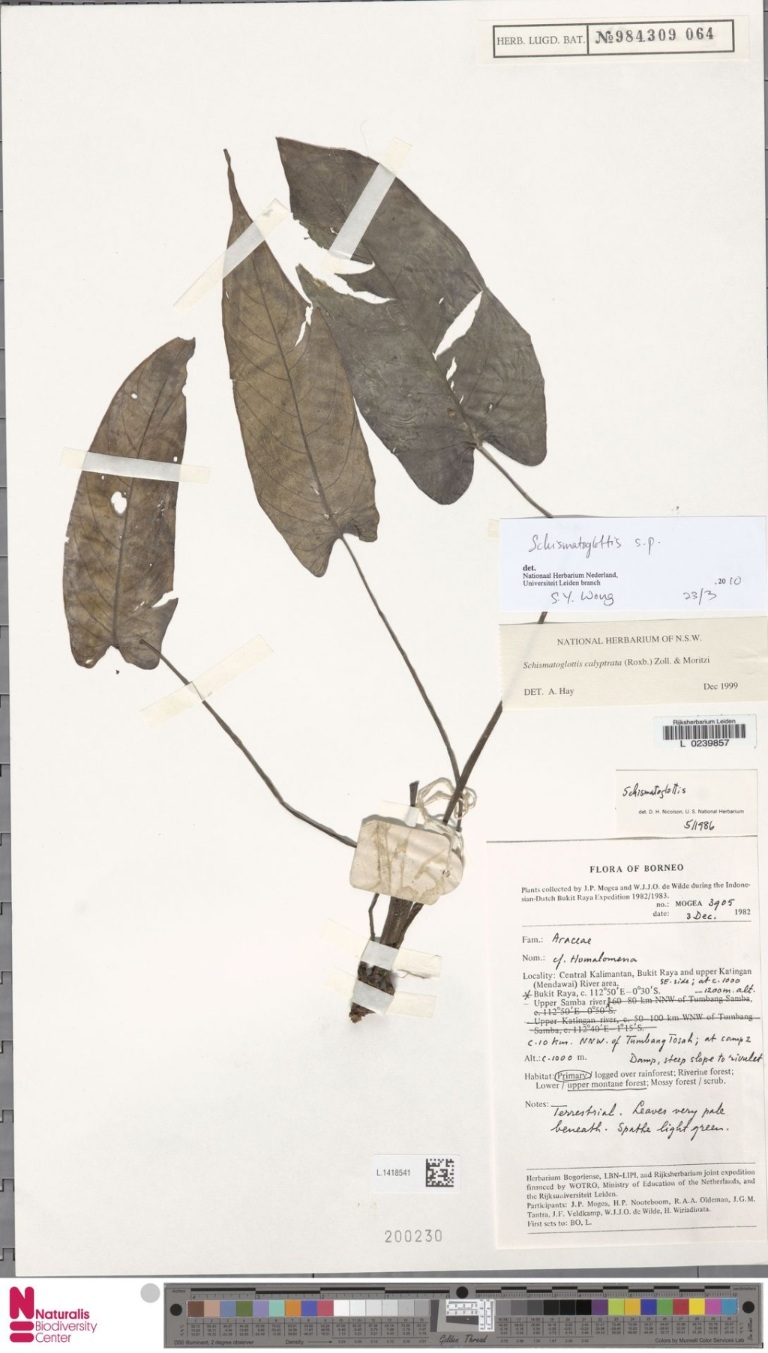 HERB. LUGD. BAT. №984309 064
Schismatoglottis s.p.
det.
Nationaal Herbarium Nederland,
Universiteit Leiden branch
, 2010
S.Y. Wong 23/3
NATIONAL HERBARIUM OF N.S.W.
Schismatoglottis calyptrata (Roxb.) Zoll. & Moritzi
DET. A. Hay Dec 1999
Rijksherbarium Leiden
L 0239857
Schismatoglottis
det. D. H. Nicolson, U. S. National Herbarium
5/1986
FLORA OF BORNEO
Plants collected by J.P. Mogea and W.J.J.O. de Wilde during the Indone-
sian-Dutch Bukit Raya Expedition 1982/1983.
no.: MOGEA 3905
date: 3 Dec. 1982
Fam.: Araceae
Nom.: cf. Homalomena
Locality: Central Kalimantan, Bukit Raya and upper Katingan
(Mendawai) River area, SE-side; at c. 1000
* Bukit Raya, c. 112°50'E—0°30'S. —1200m. alt.
– Upper Samba river, 60–80 km NNW of Tumbang Samba,
c. 112°50'E—0°50'S.
– Upper Katingan river, c. 50–100 km WNW of Tumbang
Samba, c. 112°40'E—1°15'S.
c. 10 km. NNW. of Tumbang Tosah; at camp 2
Alt.: c. 1000 m. Damp, steep slope to rivulet
Habitat: Primary / logged over rainforest; Riverine forest;
Lower / upper montane forest; Mossy forest / scrub.
Notes:
Terrestrial. Leaves very pale
beneath. Spathe light green.
Herbarium Bogoriense, LBN–LIPI, and Rijksherbarium joint expedition
financed by WOTRO, Ministry of Education of the Netherlands, and
the Rijksuniversiteit Leiden.
Participants: J.P. Mogea, H.P. Nooteboom, R.A.A. Oldeman, J.G.M.
Tantra, J.F. Veldkamp, W.J.J.O. de Wilde, H. Wiriadinata.
First sets to: BO, L.
L.1418541
200230
Naturalis
Biodiversity
Center
Golden Thread
Colors by Munsell Color Services Lab